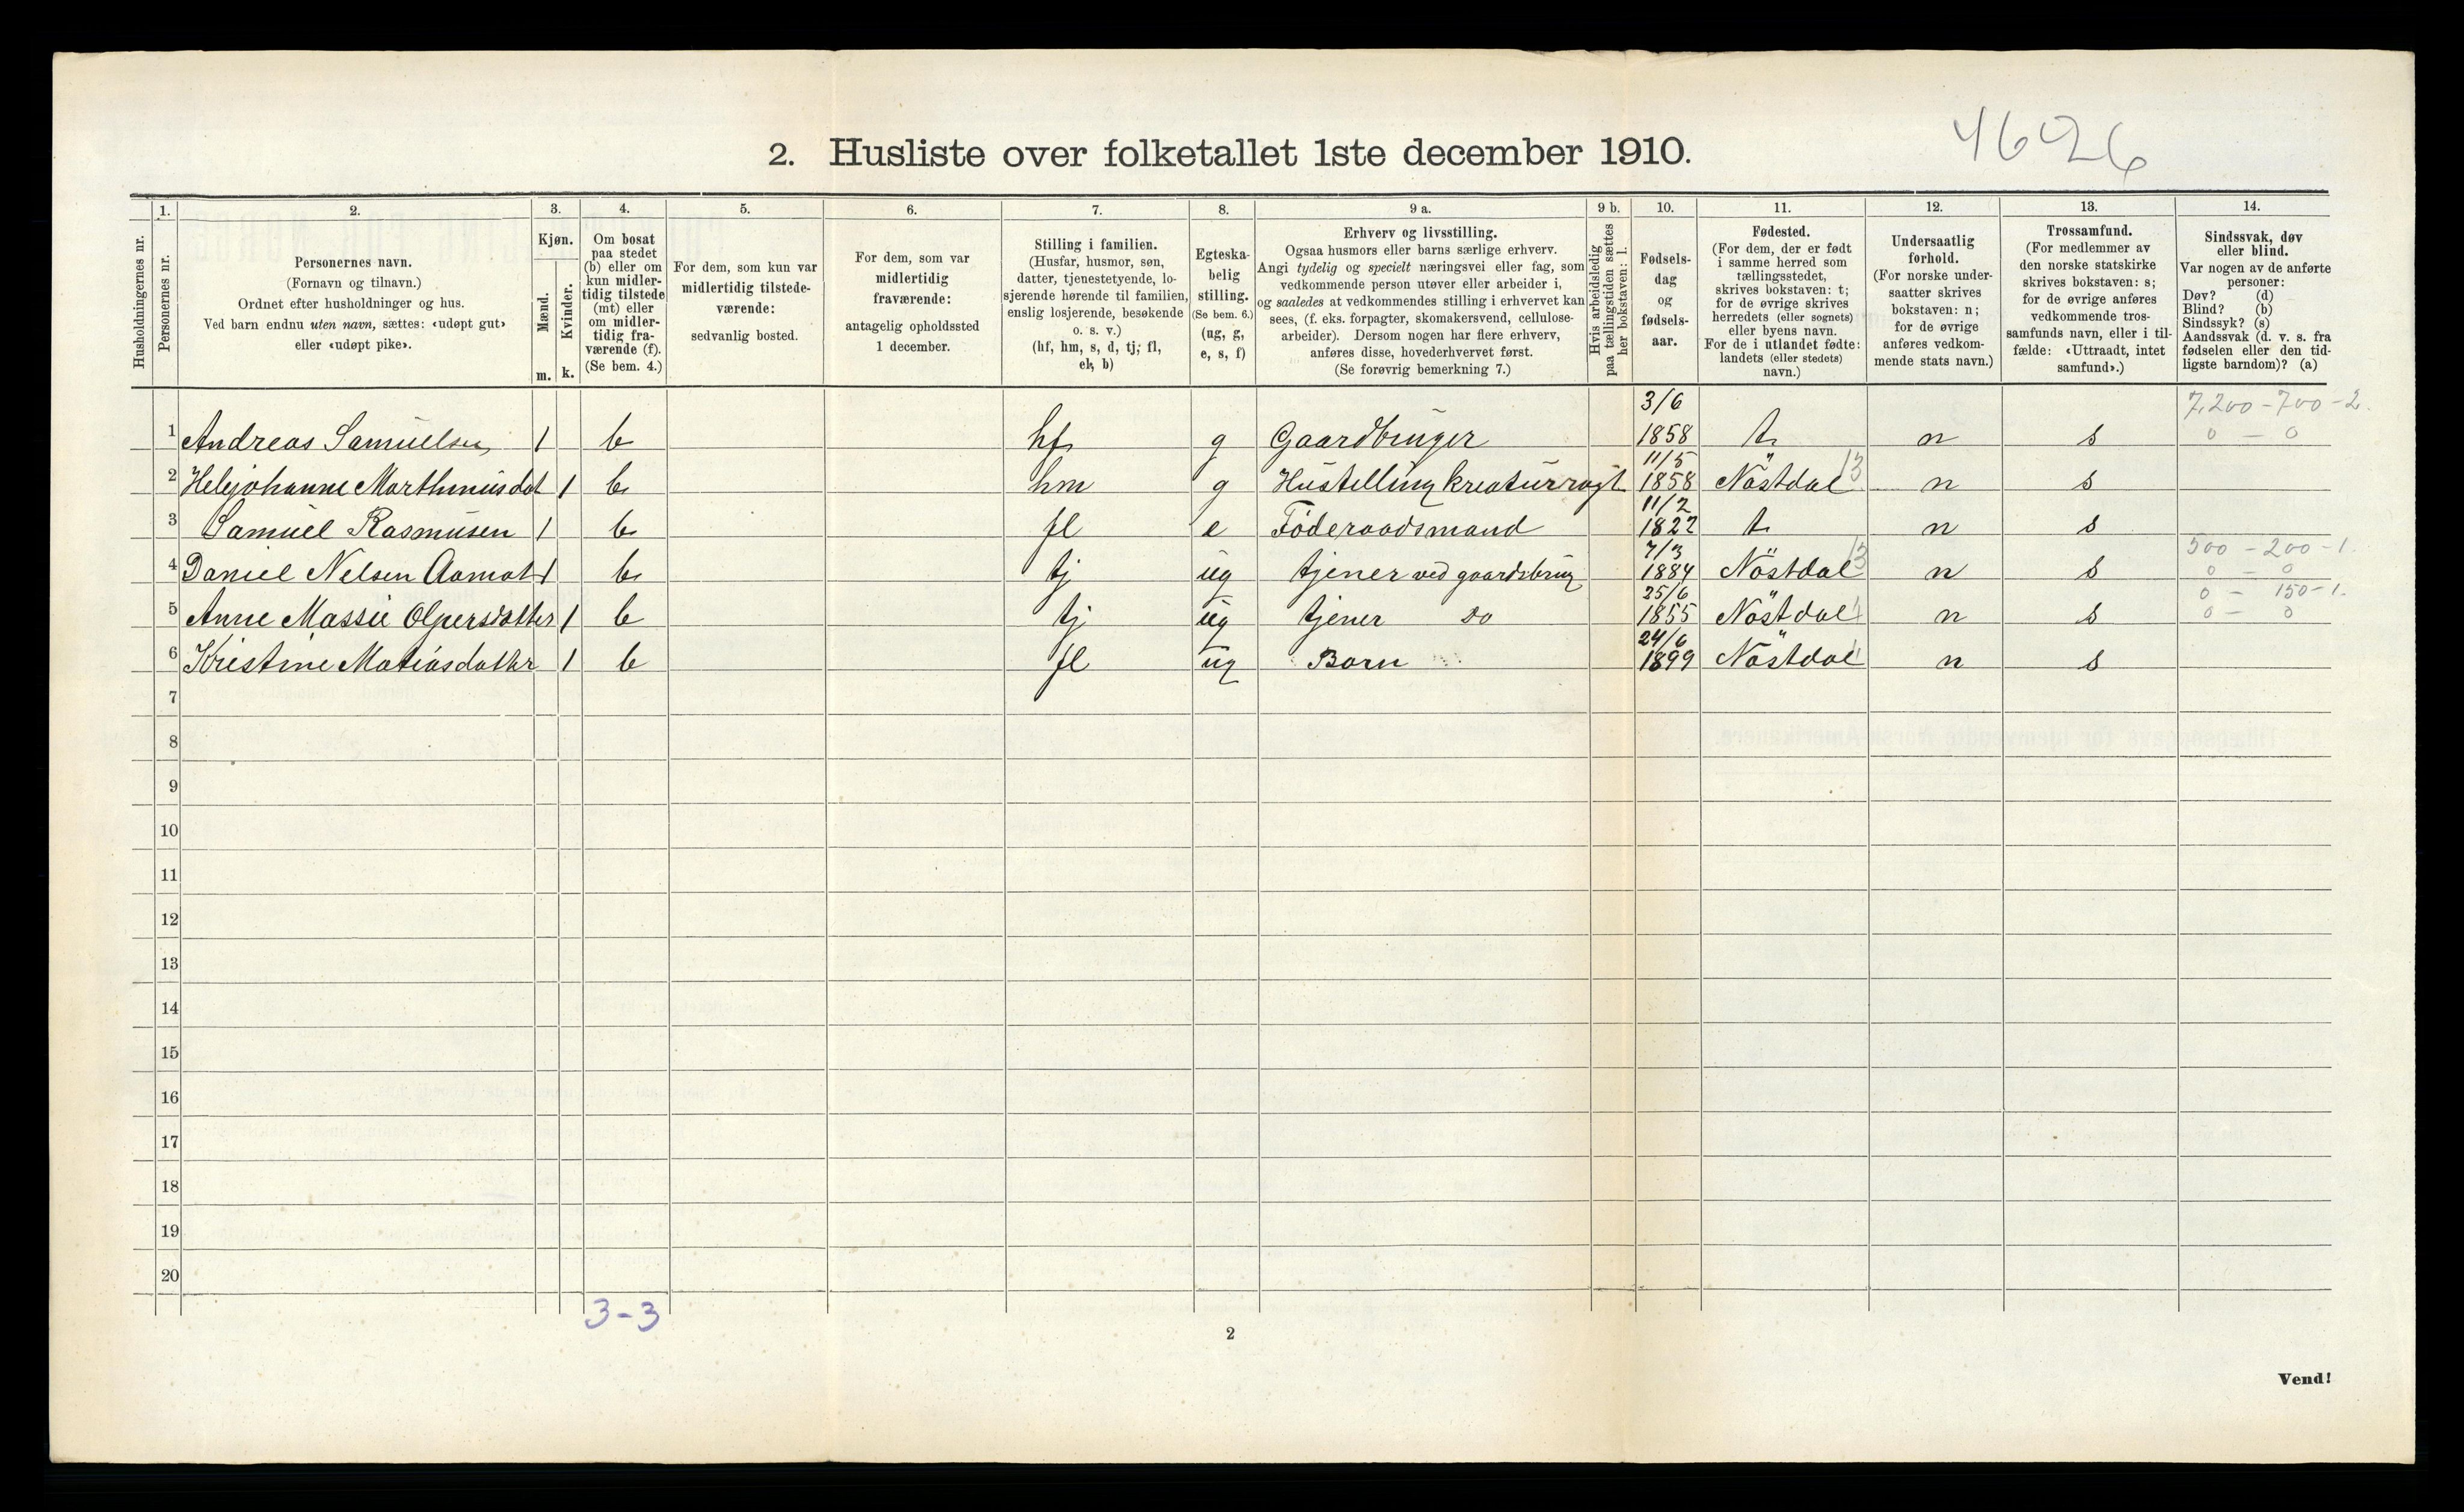 4626
2. Husliste over folketallet 1ste december 1910.
Husholdningernes nr.
1. Personernes nr.
2. Personernes navn.
(Fornavn og tilnavn.)
Ordnet efter husholdninger og hus.
Ved barn endnu uten navn, sættes: «udøpt gut»
eller «udøpt pike».
3. Kjøn.
Mænd. m.
Kvinder. k.
4. Om bosat
paa stedet
(b) eller om
kun midler-
tidig tilstede
(mt) eller
om midler-
tidig fra-
værende (f).
(Se bem. 4.)
5. For dem, som kun var
midlertidig tilstede-
værende:
sedvanlig bosted.
6. For dem, som var
midlertidig
fraværende:
antagelig opholdssted
1 december.
7. Stilling i familien.
(Husfar, husmor, søn,
datter, tjenestetyende, lo-
sjerende hørende til familien,
enslig losjerende, besøkende
o. s. v.)
(hf, hm, s, d, tj, fl,
el, b)
8. Egteska-
belig
stilling.
(Se bem. 6.)
(ug, g,
e, s, f)
9 a. Erhverv og livsstilling.
Ogsaa husmors eller barns særlige erhverv.
Angi tydelig og specielt næringsvei eller fag, som
vedkommende person utøver eller arbeider i,
og saaledes at vedkommendes stilling i erhvervet kan
sees, (f. eks. forpagter, skomakersvend, cellulose-
arbeider). Dersom nogen har flere erhverv,
anføres disse, hovederhvervet først.
(Se forøvrig bemerkning 7.)
9 b. Hvis arbeidsledig
paa tællingstiden sættes
her bokstaven: l.
10. Fødsels-
dag
og
fødsels-
aar.
11. Fødested.
(For dem, der er født
i samme herred som
tællingsstedet,
skrives bokstaven: t;
for de øvrige skrives
herredets (eller sognets)
eller byens navn.
For de i utlandet fødte:
landets (eller stedets)
navn.)
12. Undersaatlig
forhold.
(For norske under-
saatter skrives
bokstaven: n;
for de øvrige
anføres vedkom-
mende stats navn.)
13. Trossamfund.
(For medlemmer av
den norske statskirke
skrives bokstaven: s;
for de øvrige anføres
vedkommende tros-
samfunds navn, eller i til-
fælde: «Uttraadt, intet
samfund».)
14. Sindssvak, døv
eller blind.
Var nogen av de anførte
personer:
Døv? (d)
Blind? (b)
Sindssyk? (s)
Aandssvak (d. v. s. fra
fødselen eller den tid-
ligste barndom)? (a)
1 Andreas Samuelsen 1 b hf g Gaardbruger 3/6 1858 t n s 7,200 - 700 - 2. 0 - 0
2 Helejohanne Marthinusdat 1 b hm g Husstelling kreaturrøgt 11/5 1858 Nöstdal 13 n s
3 Samuel Rasmusen 1 b fl e Föderaadsmand 11/2 1822 t n s
4 Daniel Nelsen Aamot 1 b tj ug tjener ved gaardsbrug 7/3 1884 Nöstdal 13 n s 500 - 200 - 1. 0 - 0
5 Anne Massie Olpersdatter 1 b tj ug tjener do 25/6 1855 Nöstdal n s 0 - 150 - 1. 0 - 0
6 Kristine Matiasdatter 1 b fl ug Barn 24/6 1899 Nöstdal n s
7
8
9
10
11
12
13
14
15
16
17
18
19
20
3-3
2
Vend!